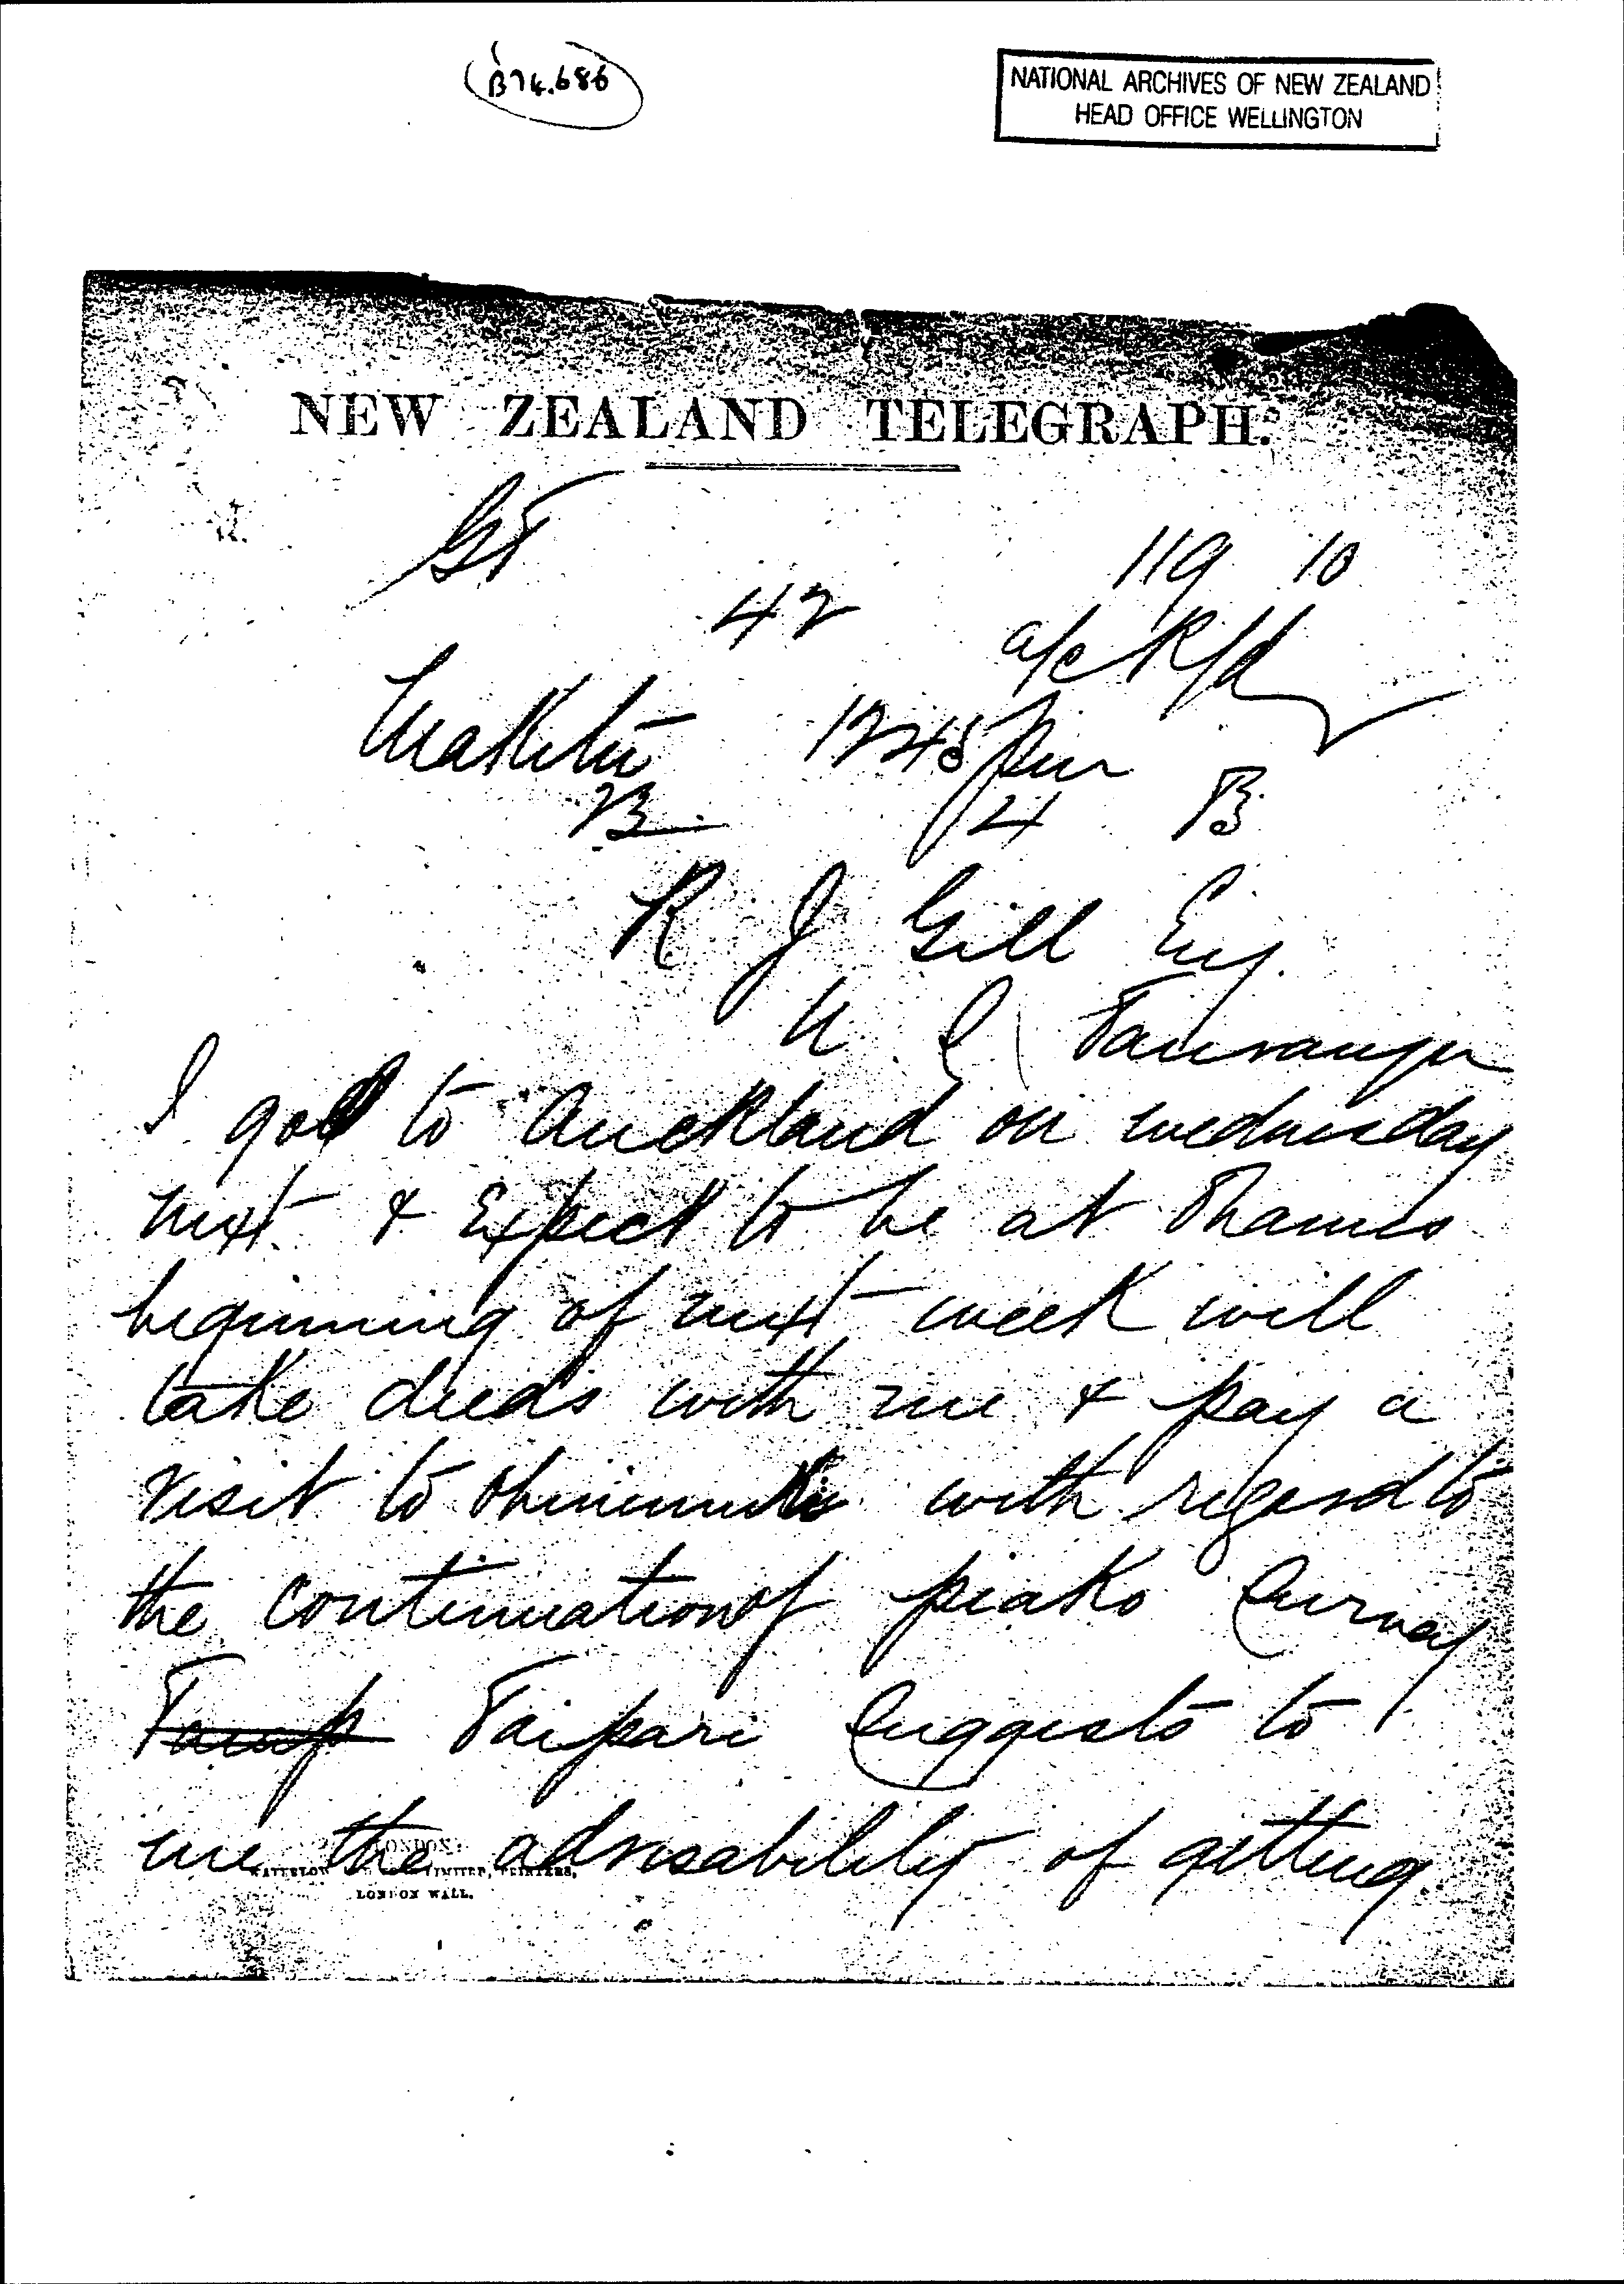 B74.686
NATIONAL ARCHIVES OF NEW ZEALAND
HEAD OFFICE WELLINGTON
NEW ZEALAND TELEGRAPH.
119 10
42
a/c
Maketu 1245 pm
4 B
R J Gill Esq
Tauranga
I go to Auckland on wednesday
next & Expect to be at Thames
beginning of next week will
take deeds with me & pay a
visit to Ohinemuri with regard to
the continuation of piako Survey
Taipari Suggests to
me the advisability of getting
LONDON
LONDON WALL.